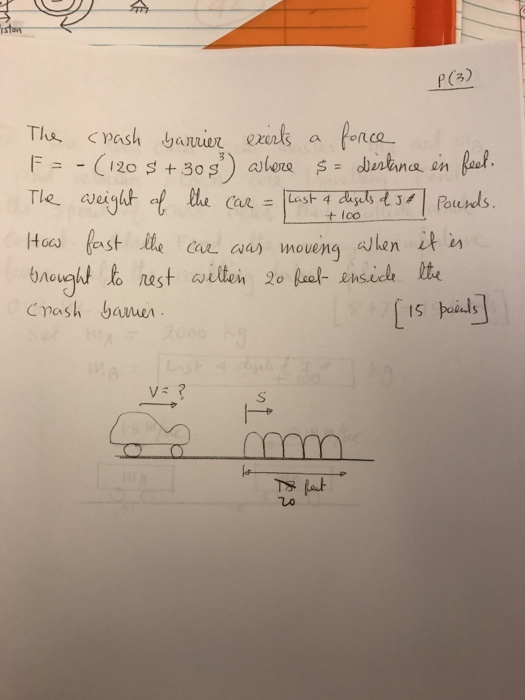 iston
P(3)
The crash barrier exerts a force
F = - (120 S + 30 S³) where S = distance in feet.
The weight of the car = Last 4 digits of J# + 100 Pounds.
How fast the car was moving when it is
brought to rest within 20 feet inside the
crash barrier. [15 points]
V = ?
S
feet
20